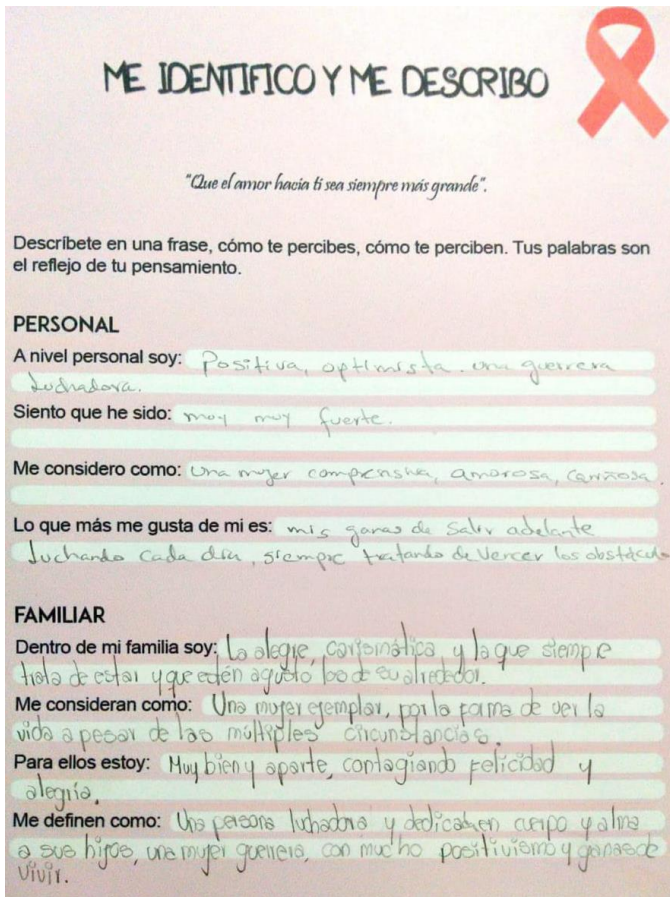 ME IDENTIFICO Y ME DESCRIBO
"Que el amor hacia ti sea siempre más grande".
Descríbete en una frase, cómo te percibes, cómo te perciben. Tus palabras son
el reflejo de tu pensamiento.
PERSONAL
A nivel personal soy: Positiva, optimista. una guerrera
Luchadora.
Siento que he sido: muy muy fuerte.
Me considero como: una mujer comprensiva, amorosa, cariñosa.
Lo que más me gusta de mi es: mis ganas de salir adelante
Luchando cada día, siempre tratando de vencer los obstáculo
FAMILIAR
Dentro de mi familia soy: La alegre, carismática y la que siempre
trata de estar y que estén agusto los de su alrededor.
Me consideran como: Una mujer ejemplar, por la forma de ver la
vida a pesar de las múltiples circunstancias.
Para ellos estoy: Muy bien y aparte, contagiando felicidad y
alegría.
Me definen como: Una persona luchadora y dedica en cuerpo y alma
a sus hijos, una mujer guerrera, con mucho positivismo y ganas de
vivir.